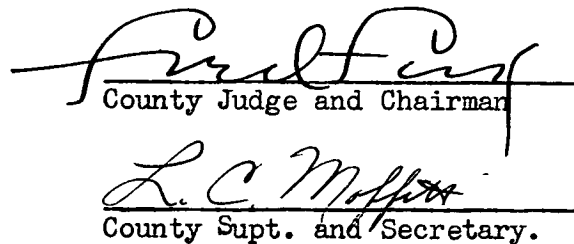 Fred
County Judge and Chairman
L. C. Moffitt
County Supt. and Secretary.